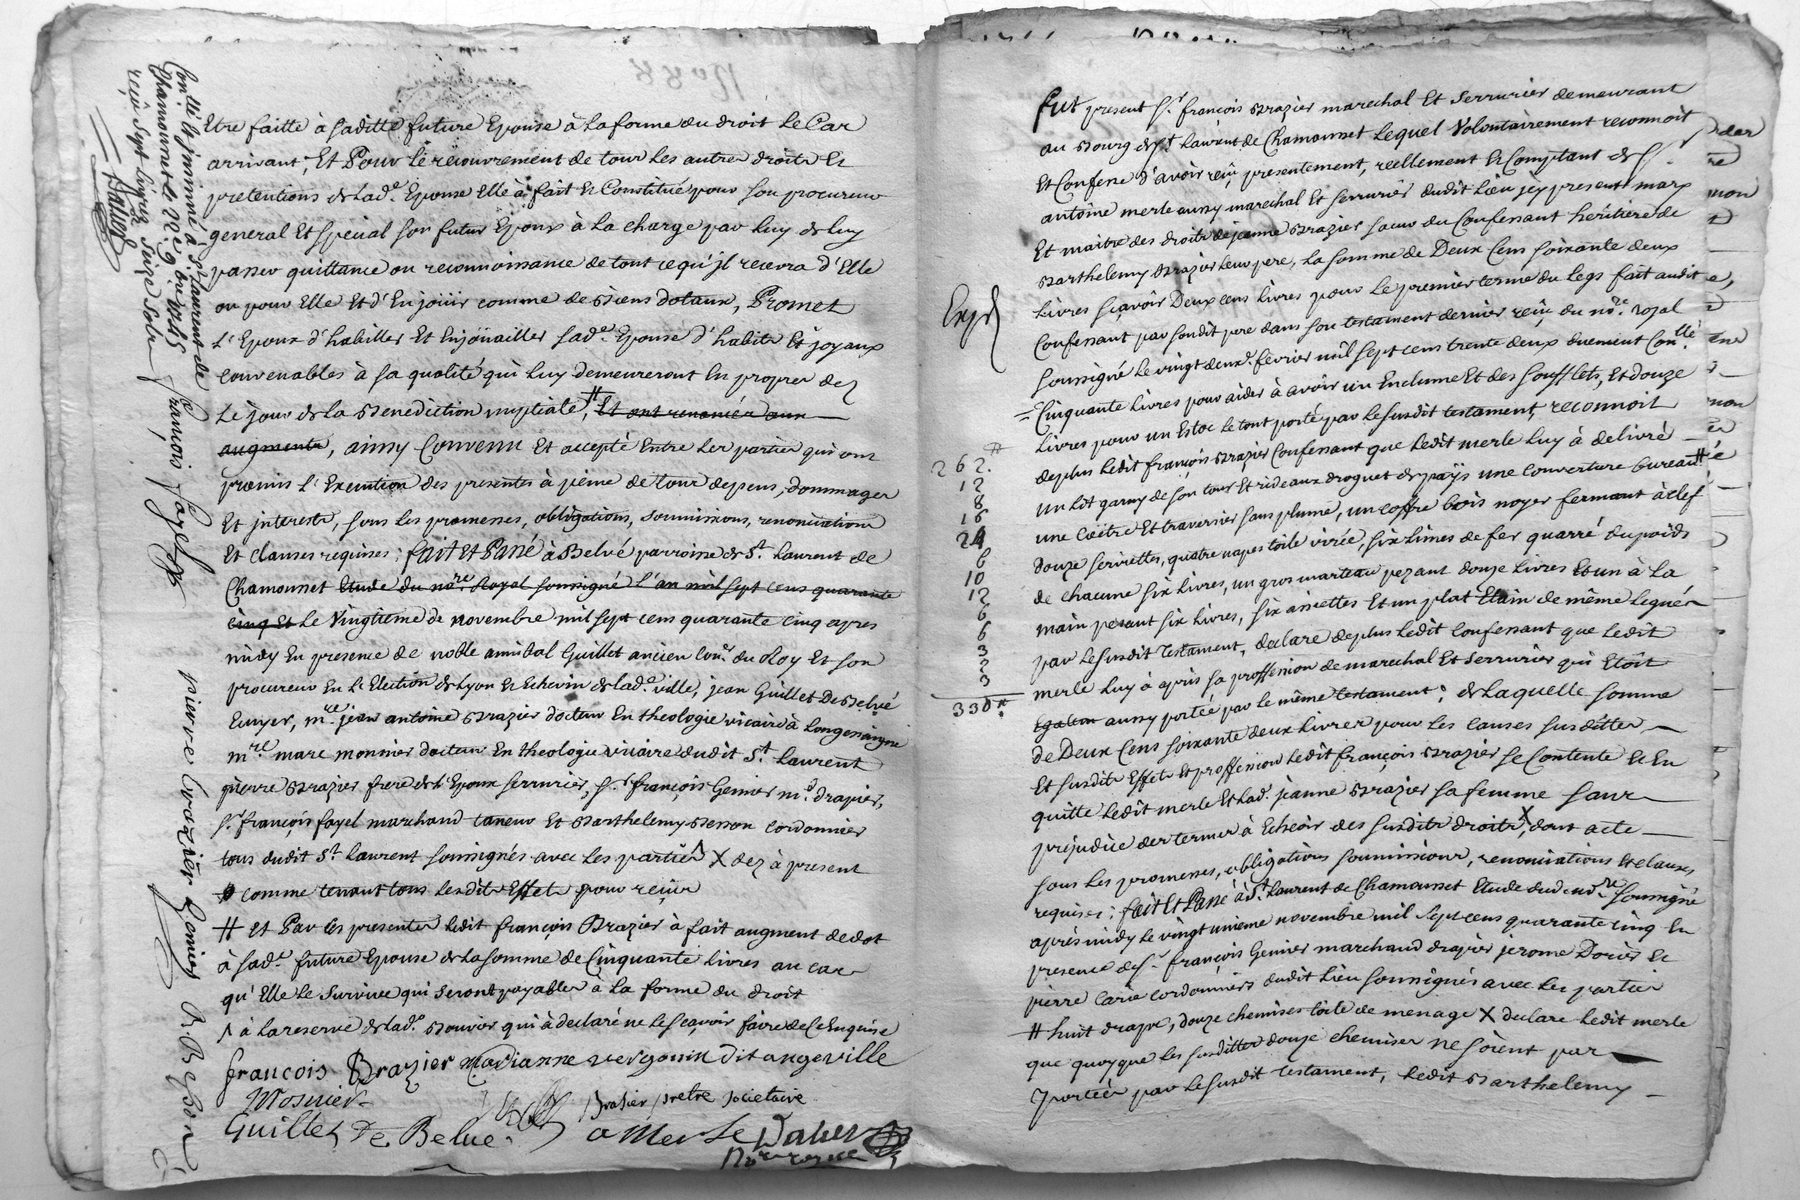 Etre faitte à saditte future Epouse à la forme du droit le Cas
arrivant, Et Pour le recouvrement de tous les autres droits Et
pretentions de lad.e Epouse Elle à fait Et Constitué pour son procureur
general Et special son futur Epoux à la charge par luy de luy
passer quittance ou reconnoissance de tout ce qu'jl recevra d'Elle
ou pour Elle Et d'En joüir comme de Biens dotaux, Promet
L'Epoux d'habiller Et Enjoüailler sad.e Epouse d'habits Et joyaux
convenables à sa qualité qui luy demeureront En propres dez
le jour de la Benediction nuptiale, # Et ont renoncés aux
augments, ainsy Convenu Et accepté Entre les parties qui ont
promis l'Execution des presentes à peine de tous depens, dommages
Et jnterests, sous les promesses, obligations, soumissions, renonciations
Et clauses requises : fait Et Passé à Belvé parroisse de St. Laurent de
Chamousset Etude du no.re Royal soussigné l'an mil sept cens quarante
cinq Et le vingtieme de novembre mil sept cens quarante cinq apres
midy En presence de noble annibal Guillet ancien Con.er du Roy Et son
procureur En l'Election de Lyon Et Echevin de lad.e ville, jean Guillet De Belvé
Ecuyer, m.re jean antoine Brazier docteur En theologie vicaire à Longessaigne
m.re marc monnier docteur En theologie vicaire dudit St. Laurent
pierre Brazier frere de l'Epoux serrurier, s.r françois Genier m.d drapier,
s.r françois fayel marchand taneur Et Barthelemy Besson cordonnier
tous dudit St. Laurent soussignés avec les parties Λ X dez à present
comme tenant tous lesdits Effets pour reçus
# Et Par les presentes ledit françois Brazier à fait augment de dot
à sad.e future Epouse de la somme de Cinquante livres au cas
qu'Elle le survive qui seront payables à la forme du droit
Λ à la reserve de lad.e Bouvier qui à declaré ne le sçavoir faire de ce Enquise
françois Brazier Marianne vergouin dit angeville
Mosnier Brasier pretre societaire
Guillet De Belue a Merle Dalier
No.re royal
Con.llé Et jnsinué à St. Laurent de
Chamousset le 22.e 9.bre 1745
reçû sept livres seize sols
Dallier
françois fayel
pierre brazier Genier B Beson
fut present s.r françois Brazier marechal Et serrurier demeurant
au Bourg de St. Laurent de Chamousset lequel volontairement reconnoit
Et Confesse d'avoir reçû presentement, reellement Et Comptant de s.r
antoine merle aussy marechal Et serrurier dudit lieu jcy present mary
Et maitre des droits de jeanne Brazier sœur du Confessant heritiere de
Barthelemy Brazier leur pere, la somme de Deux Cens soixante deux
livres sçavoir Deux cens livres pour le premier terme du legs fait audit
Confessant par sondit pere dans son testament dernier reçû du no.re royal
soussigné le vingt deux fevrier mil sept cens trente deux duement Con.llé
Cinquante livres pour aider à avoir un Enclume Et des soufflets, Et douze
livres pour un Estoc le tout porté par le susdit testament, reconnoit
deplus ledit françois Brazier Confessant que ledit merle luy à delivré
un lit garny de son tour Et rideaux droguet de païs une couverture bureau #
une Coëtre Et traversier sans plume, un coffre bois noyer fermant à clef
douze serviettes, quatre napes toile virée, six limes de fer quarré du poids
de chacune six livres, un gros marteau pezant douze livres Et un à la
main pesant six livres, six assiettes Et un plat Etain de même legués
par le susdit testament, declare deplus ledit Confessant que ledit
merle luy à apris sa proffession de marechal Et serrurier qui Etoit
aussy portée par le même testament ; de laquelle somme
de Deux Cens soixante deux livres pour les causes susdittes
Et susdits Effets Et proffession ledit françois Brazier se Contente Et En
quitte ledit merle Et lad.e jeanne Brazier sa femme sans
prejudice des termes à Echeoir des susdits droits X, dont acte
sous les promesses, obligations soumissions, renonciations Et clauses
requises : fait Et Passé à St. Laurent de Chamousset Etude dud. no.re soussigné
après midy le vingt unieme novembre mil sept cens quarante cinq En
presence de s.r françois Genier marchand drapier jerome Dorier Et
pierre Carie cordonniers dudit lieu soussignés avec les parties
# huit draps, douze chemises toile de menage X declare ledit merle
que quoyque les susdittes douze chemises ne soient pas
portées par le susdit testament, ledit Barthelemy
Exp.é
262.#
12
8
16
24
6
10
12
6
6
3
3
3
330#